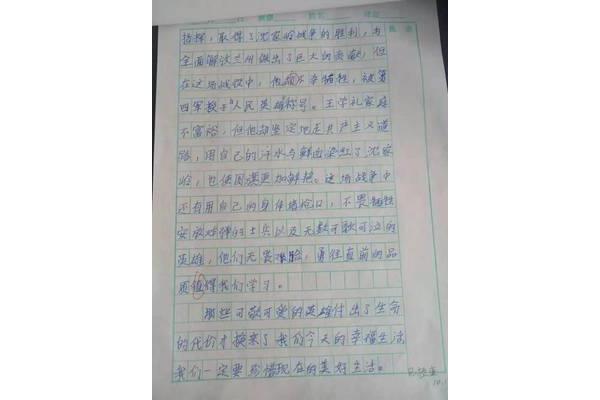 指挥，取得了沈家岭战争的胜利，为
全面解放兰州做出了巨大的贡献，但
在这场战役中，他 不幸牺牲，被第
四军授予“人民英雄”称号。王学礼家庭
不富裕，但他却坚定地走共产主义道
路，用自己的汗水与鲜血染红了沈家
岭，也使国旗更加鲜艳。这场战争中
还有用自己的身体堵枪口，不畏牺牲
安放炸弹的士兵以及无数可歌可泣的
英雄，他们无畏艰险，勇往直前的品
质值得我们学习。
那些可敬可爱的英雄付出了生命
的代价才换来了我们今天的幸福生活
我们一定要珍惜现在的美好生活。